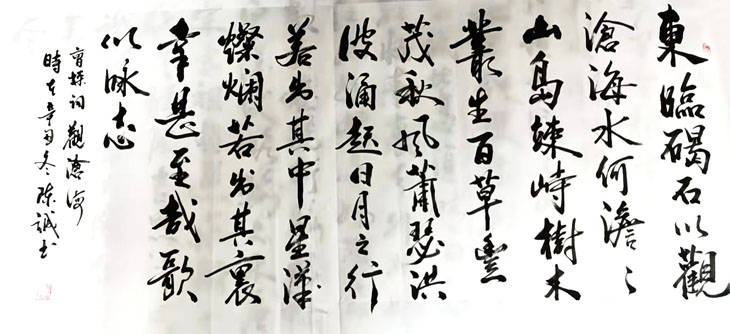 東臨碣石以觀
滄海水何澹〻
山島竦峙樹木
叢生百草豐
茂秋風蕭瑟洪
波涌起日月之行
若出其中星漢
燦爛若出其裏
幸甚至哉歌
以詠志
曹操詞觀滄海
時在辛丑冬陳誠書